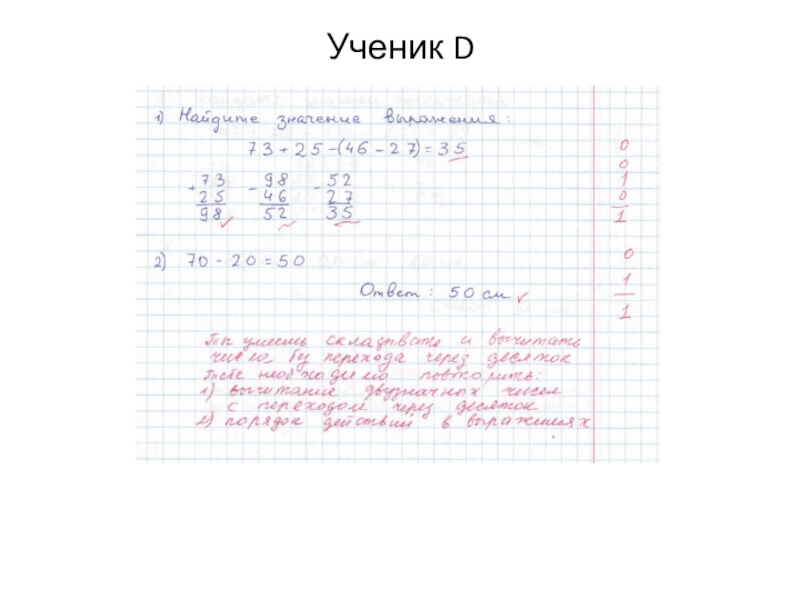 Ученик D
1) Найдите значение выражения:
73 + 25 - (46 - 27) = 35
0
0
+ 73 - 98 - 52
1
25 46 27
0
98 52 35
1
2) 70 - 20 = 50
0
Ответ: 50 см
1
1
Ты умеешь складывать и вычитать
числа без перехода через десяток
Тебе необходимо повторить:
1) вычитание двузначных чисел
с переходом через десяток
2) порядок действий в выражениях.